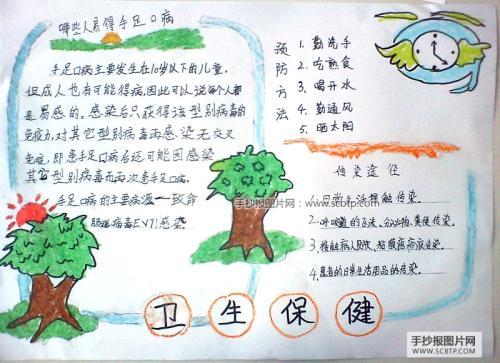 哪些人易得手足口病
手足口病主要发生在10岁以下的儿童,
但成人也有可能得病,因此可以说每个人都
是易感的。感染后只获得该型别病毒的
免疫力,对其它型别病毒再感染无交叉
免疫,即患手足口病后还可能因感染
其它型别病毒而再次患手足口病。
手足口病的主要病源一致命
肠道病毒EV71感染
预防方法
1. 勤洗手
2. 吃熟食
3. 喝开水
4. 勤通风
5. 晒太阳
传染途径
1. 日常生活接触传染。
2. 呼吸道的飞沫、分泌物、粪便传染。
3. 接触病人皮肤、粘膜疱疹液感染。
4. 患者的日常生活用品的传染。
卫生保健
手抄报图片网：www.scbtp.com
手抄报图片网
WWW.SCBTP.COM